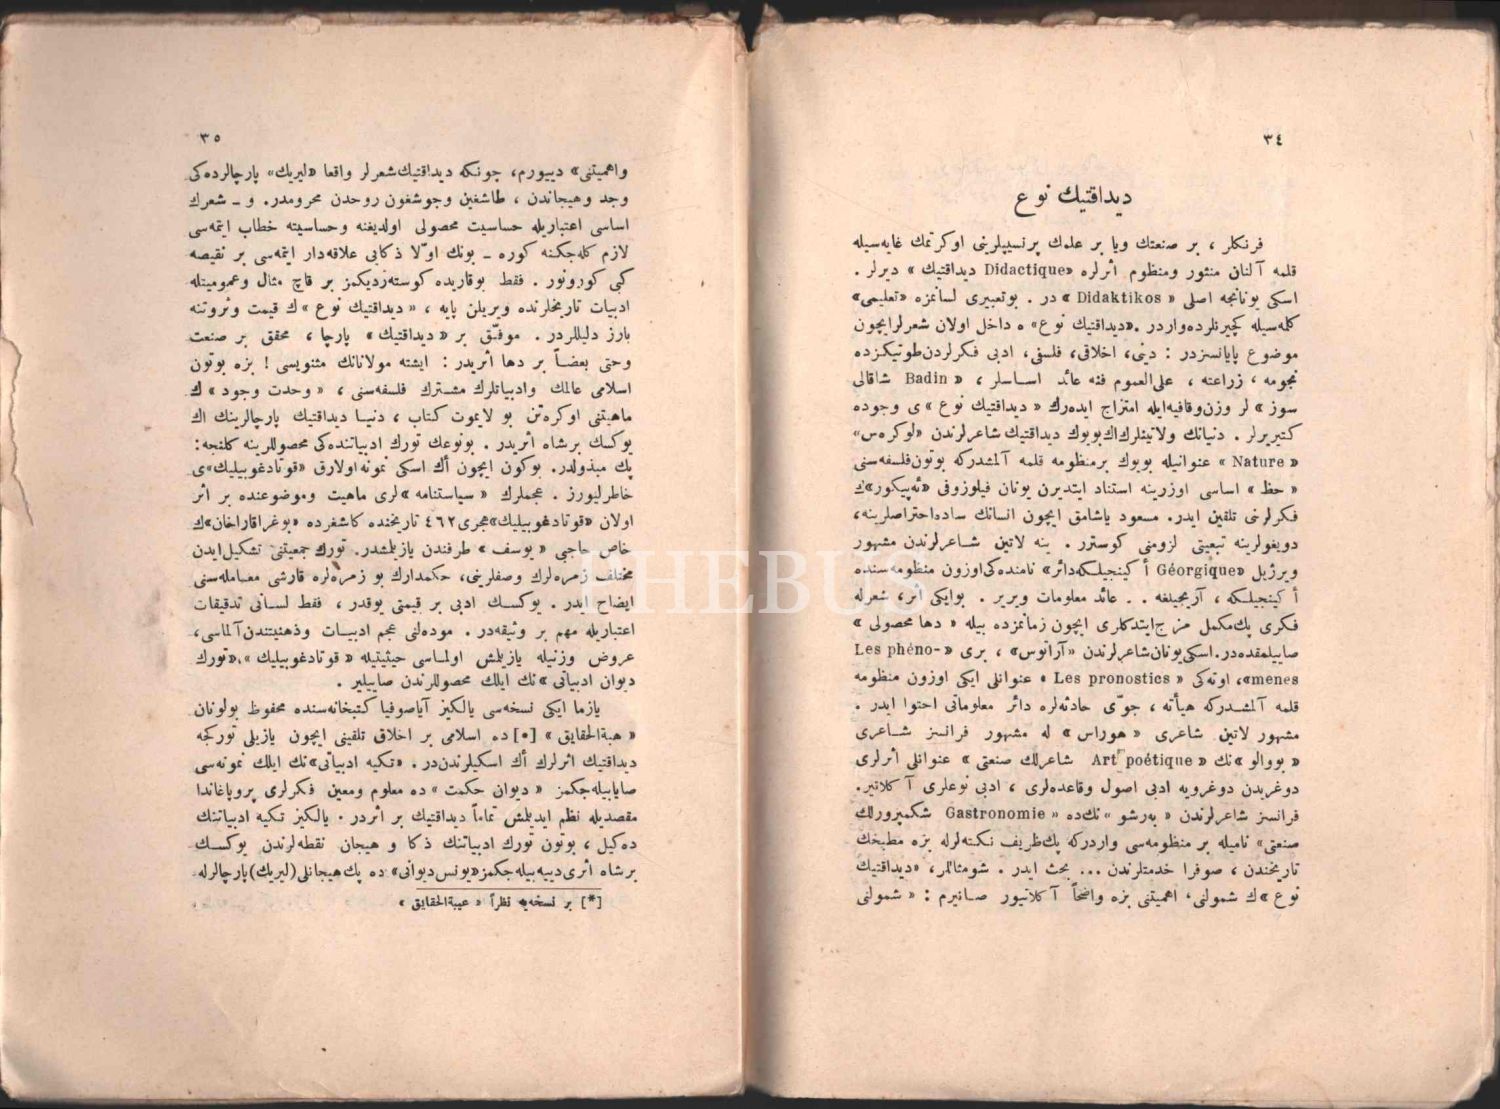 ٣٤
ديداقتيك نوع
فرنكلر ، بر صنعتك ويا بر علمك پرنسيپلرينى اوكرتمك غايه‌سيله
قلمه آلنان منثور ومنظوم اثرلره «Didactique ديداقتيك » ديرلر .
اسكى يونانجه اصلى « Didaktikos » در . بوتعبيرى لسانمزه «تعليمى»
كلمه‌سيله چويرنلرده‌واردر . «ديداقتيك نوع» ه داخل اولان شعرلرايچون
موضوع پايانسزدر : دينى، اخلاقى، فلسفى، ادبى فكرلردن‌طوتيكزده
نجومه ، زراعته ، على‌العموم فنه عائد اساسلر ، « Badin شاقالى
سوز » لر وزن‌وقافيه‌ايله امتزاج ايده‌رك « ديداقتيك نوع »ى وجوده
كتيريرلر . دنيانك ولاتينلرك‌اك‌بويوك ديداقتيك شاعرلرندن «لوكره‌س»
« Nature » عنوانيله بويوك برمنظومه قلمه آلمشدركه بوتون‌فلسفه‌سنى
« حظ » اساسى اوزرينه استناد ايتديرن يونان فيلوزوفى «ئه‌پيكور»ك
فكرلرنى تلقين ايدر. مسعود ياشامق ايچون انسانك ساده‌احتراصلرينه،
دويغولرينه تبعيتى لزومنى كوسترر . ينه لاتين شاعرلرندن مشهور
ويرژيل «Géorgique أكينجيلكه‌دائر» نامنده‌كى‌اوزون منظومه‌سنده
أكينجيلكه ، آريجيلغه . . عائد معلومات ويرير . بوايكى اثر، شعرله
فكرى پك‌مكمل مزج‌ايتدكلرى ايچون زمانمزده بيله « دها محصولى »
صاييلمقده‌در.اسكى‌يونان‌شاعرلرندن «آراتوس» ، برى «Les phéno-
menes»، اوته‌كى « Les pronostics » عنوانلى ايكى اوزون منظومه
قلمه آلمشدركه هيأته ، جوّى حادثه‌لره دائر معلوماتى احتوا ايدر .
مشهور لاتين شاعرى « هوراس » له مشهور فرانسز شاعرى
« بووالو »نك « Art poétique شاعرلك صنعتى » عنوانلى أثرلرى
دوغريدن دوغرويه ادبى اصول وقاعده‌لرى ، ادبى نوعلرى آكلاتير.
فرانسز شاعرلرندن « به‌رشو » نك‌ده « Gastronomie شكمپرورلك
صنعتى» ناميله بر منظومه‌سى واردركه پك‌ظريف نكته‌لرله بزه مطبخك
تاريخندن ، صوفرا خدمتلرندن ... بحث ايدر . شومثاللر، «ديداقتيك
نوع »ك شمولنى، اهميتنى بزه واضحاً آكلاتيور صانيرم : « شمولنى
٣٥
واهميتنى» دييورم، چونكه ديداقتيك‌شعرلر واقعا «ليريك» پارچالرده‌كى
وجد وهيجاندن ، طاشغين وجوشغون روحدن محرومدر. و ـ شعرك
اساسى اعتباريله حساسيت محصولى اولديغنه وحساسيته خطاب ايتمه‌سى
لازم كله‌جكنه كوره ـ بونك اوّلا ذكايى علاقه‌دار ايتمه‌سى بر نقيصه
كبى كورونور . فقط بوقاريده كوسته‌رديكمز بر قاچ مثال وعموميتله
ادبيات تاريخلرنده ويريلن پايه ، « ديداقتيك نوع »ك قيمت وثروتنه
بارز دليللردر. موفّق بر « ديداقتيك » پارچا ، محقق بر صنعت
وحتى بعضاً بر دها أثريدر : ايشته مولانانك مثنويسى ! بزه بوتون
اسلامى عالمك وادبياتلرك مشترك فلسفه‌سنى ، « وحدت وجود » ك
ماهيتنى اوكره‌تن بو لايموت كتاب ، دنيا ديداقتيك پارچالرينك اك
يوكسك برشاه أثريدر . بونوعك تورك ادبياتنده‌كى محصوللرينه كلنجه:
پك مبذولدر. بوكون ايچون أك اسكى نمونه‌اولارق «قوتادغوبيليك»ى
خاطرليورز . عجملرك « سياستنامه »لرى ماهيت وموضوعنده بر اثر
اولان «قوتادغوبيليك»هجرى٤٦٢ تاريخنده كاشغرده «بوغراقاراخان»ك
خاص حاجبى « يوسف » طرفندن يازيلمشدر. تورك جمعيتنى تشكيل‌ايدن
مختلف زمره‌لرك وصفلرينى، حكمدارك بو زمره‌لره قارشى معامله‌سنى
ايضاح ايدر. يوكسك ادبى بر قيمتى يوقدر ، فقط لسانى تدقيقات
اعتباريله مهم بر وثيقه‌در . موده‌لنى عجم ادبيات وذهنيتندن‌آلماسى،
عروض وزنيله يازيلمش اولماسى حيثيتيله « قوتادغوبيليك »،«تورك
ديوان ادبياتى »نك ايلك محصوللرندن صاييلير .
يازما ايكى نسخه‌سى يالكيز آياصوفيا كتبخانه‌سنده محفوظ بولونان
« هبة‌الحقايق » [*] ده اسلامى بر اخلاق تلقينى ايچون يازيلى توركجه
ديداقتيك اثرلرك أك اسكيلرندن‌در . «تكيه ادبياتى»نك ايلك نمونه‌سى
صايابيله‌جكمز « ديوان حكمت » ده معلوم ومعين فكرلرى پروپاغاندا
مقصديله نظم ايديلمش تماماً ديداقتيك بر أثردر . يالكيز تكيه ادبياتنك
ده‌كيل ، بوتون تورك ادبياتنك ذكا و هيجان نقطه‌لرندن يوكسك
برشاه أثرى دييه‌بيله‌جكمز«يونس‌ديوانى» ده پك‌هيجانلى(ليريك)پارچالرله
[*] بر نسخه‌يه نظراً « عيبة‌الحقايق »
THEBUS